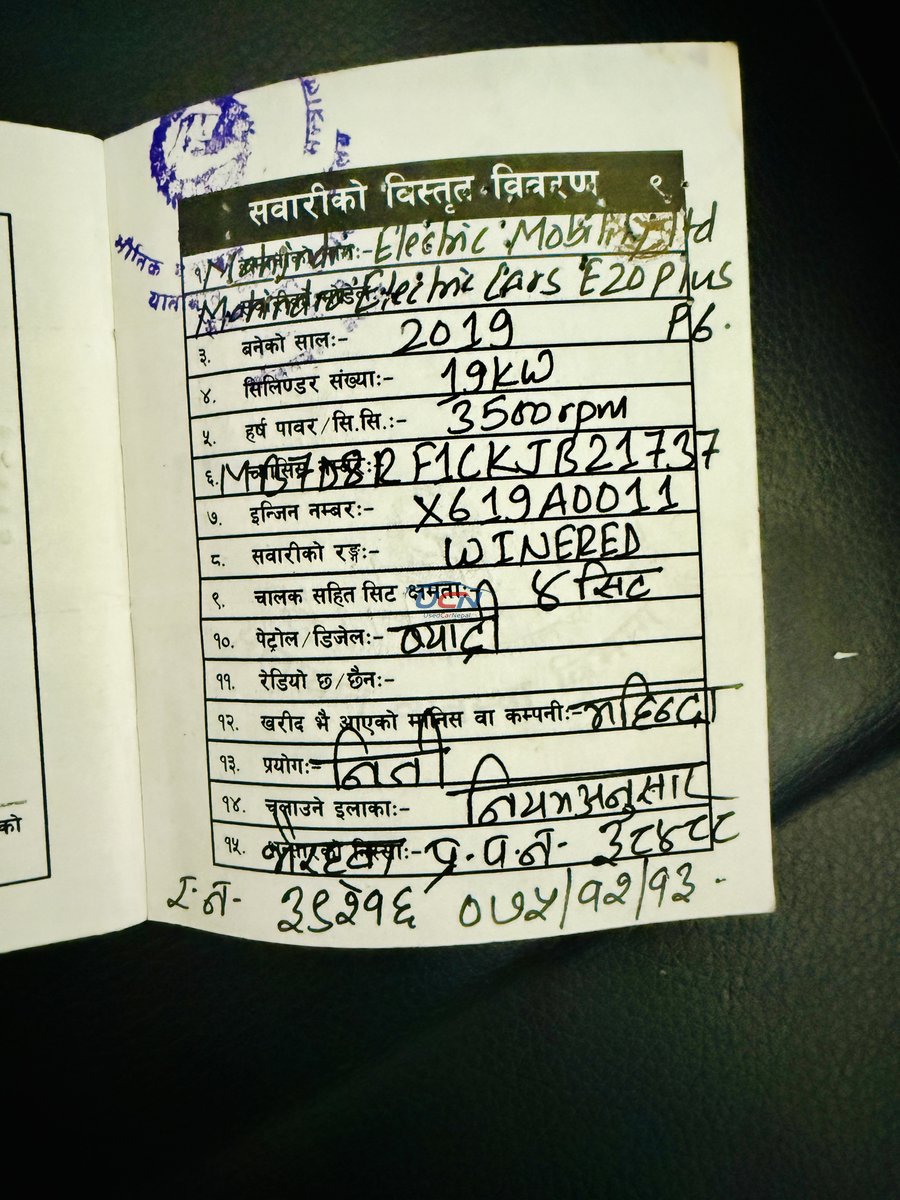 सवारीको विस्तृत विवरण ९
१. Mahindra Electric Mobility Ltd
२. Mahindra Electric Cars E20 Plus
P6.
३. बनेको सालः- 2019
४. सिलिण्डर संख्याः- 19KW
५. हर्ष पावर/सि.सि.ः- 3500rpm
६. F1CKJB21737
७. इन्जिन नम्बरः- X619A0011
८. सवारीको रङ्गः- WINERED
९. चालक सहित सिट क्षमताः- ४ सिट
UCN
UsedCarNepal
१०. पेट्रोल/डिजेलः- ब्याट्री
११. रेडियो छ/छैनः-
१२. खरीद भै आएको मानिस वा कम्पनीः- महिन्द्रा
१३. प्रयोगः- निजी
१४. चलाउने इलाकाः- नियमअनुसार
१५. प्र.प.न- ३८४८८
र.न- ३९२१६ ०७५/१२/१३.
को
भौतिक